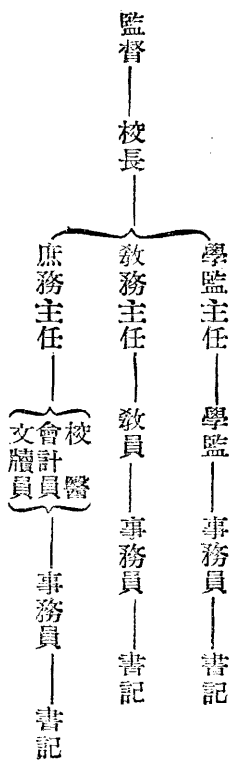 監督
校長
學監主任
學監
事務員
書記
敎務主任
敎員
事務員
書記
庶務主任
校醫
會計員
文牘員
事務員
書記